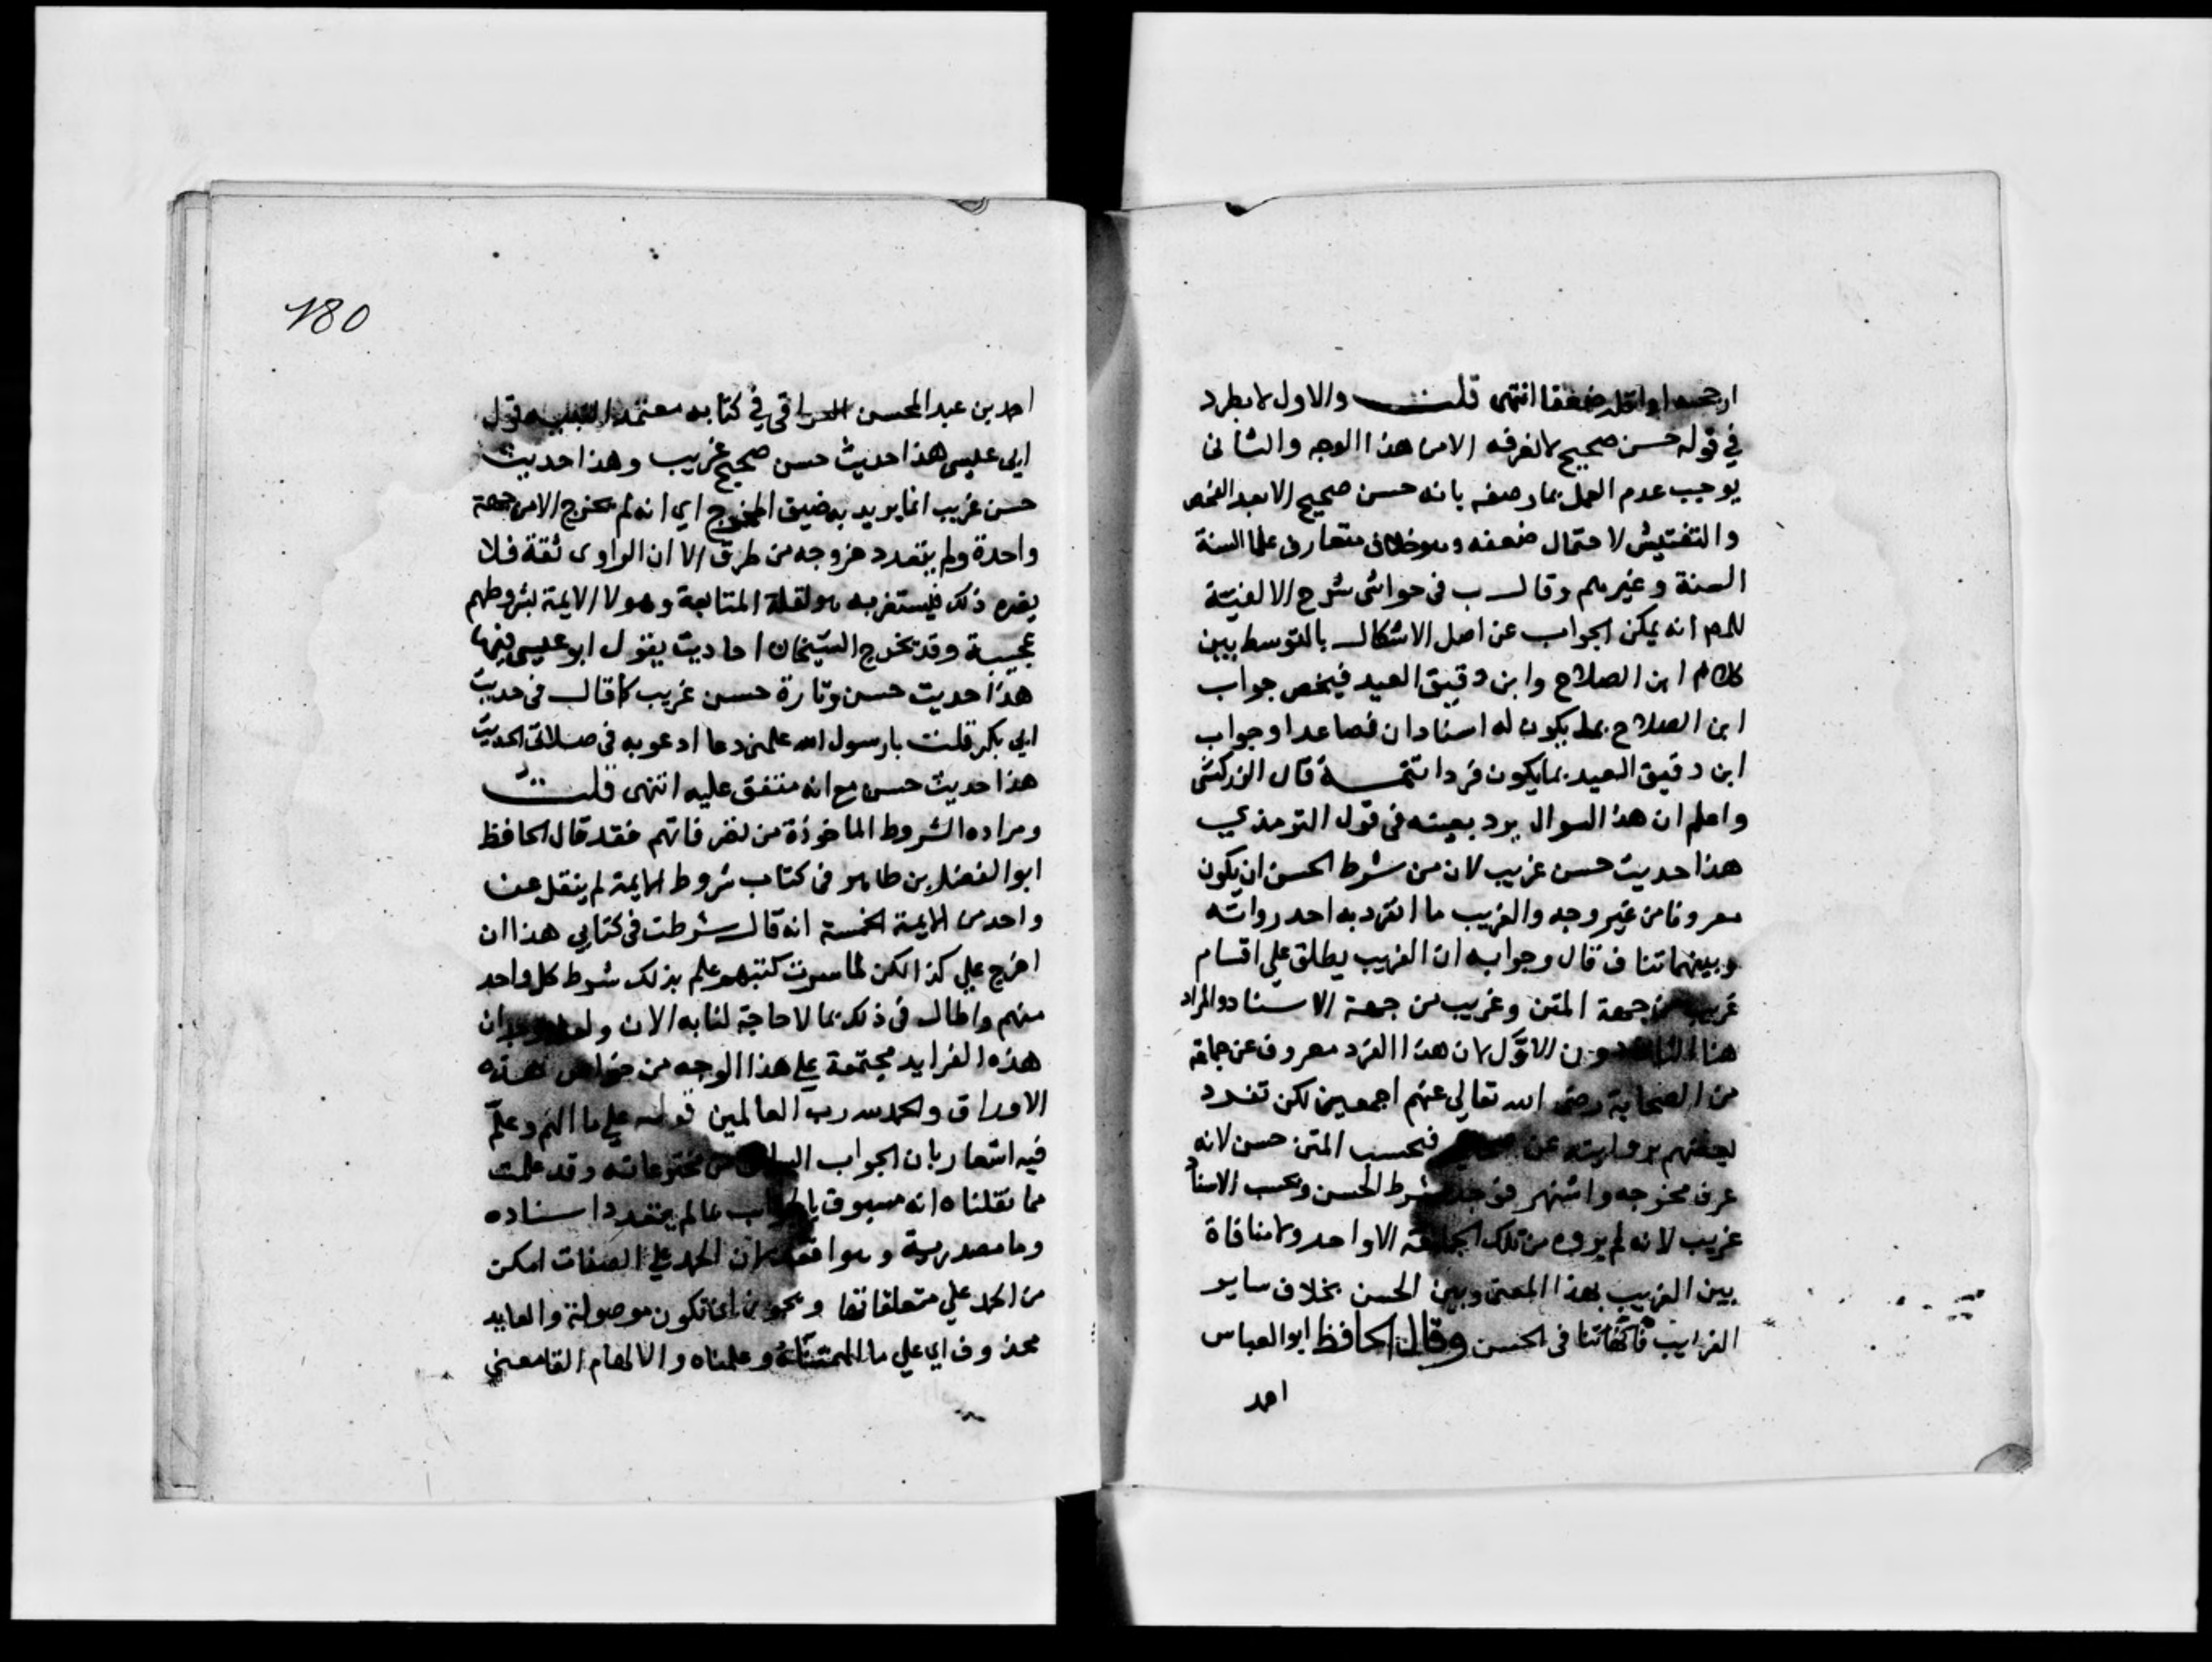 ارجحه او اقله ضعفا انتهى قلت والاول لا يطرد
في قوله حسن صحيح لانعرفه الا من هذا الوجه والثاني
يوجب عدم العمل بما وصفه بانه حسن صحيح الا بعد الفحص
والتفتيش لاحتمال ضعفه وهو خلاف متعارف علما السنة
السنة وغيرهم وقال ب في حواشي شرح الالفية
للمم انه يمكن الجواب عن اصل الاشكال بالتوسط بين
كلام ابن الصلاح وابن دقيق العيد فيخص جواب
ابن الصلاح بما يكون له اسنادان فصاعدا وجواب
ابن دقيق العيد بما يكون فردا تتمة قال الزركشي
واعلم ان هذا السوال يرد بعينه في قول الترمذي
هذا حديث حسن غريب لان من شرط الحسن ان يكون
معروفا من غير وجه والغريب ما انفرد به احد رواته
وبينهما تناف قال وجوابه ان الغريب يطلق علي اقسام
غريب من جهة المتن وغريب من جهة الاسناد والمراد
هنا الثاني دون الاول لان هذا الفرد معروف عن جماعة
من الصحابة رضي الله تعالي عنهم اجمعين لكن تفرد
بعضهم بروايته عن فبحسب المتن حسن لانه
عرف مخرجه واشتهر فوجد شرط الحسن وبحسب الاسناد
غريب لانه لم يروه من تلك الجماعة الا واحد ولا منافاة
بين الغريب بهذا المعني وبين الحسن بخلاف ساير
الغرايب فانها تنافي الحسن وقال الحافظ ابو العباس
احمد
180
احمد بن عبد المحسن العراقي في كتابه معتمد قول
ابي عيسي هذا حديث حسن صحيح غريب وهذا حديث
حسن غريب انما يريد به ضيق المخرج اي انه لم يخرج الا من جهة
واحدة ولم يتعدد خروجه من طرق الا ان الراوي ثقة فلا
يضره ذلك فيستغربه هو لقلة المتابعة وهولا الايمة بشروطهم
عجيبة وقد يخرج الشيخان احاديث يقول ابو عيسي فيها
هذا حديث حسن وتارة حسن غريب كما قال في حديث
ابي بكر قلت يا رسول الله علمني دعا ادعو به في صلاتي الحديث
هذا حديث حسن مع انه متفق عليه انتهى قلت
ومراده الشروط الماخوذة من تصرفاتهم فقد قال الحافظ
ابو الفضل بن طاهر في كتاب شروط الايمة لم ينقل عن
واحد من الايمة الخمسة انه قال شرطت في كتابي هذا ان
اخرج علي كذا لكن لما سبرت كتبهم علم بذلك شرط كل واحد
منهم واطال في ذلك بما لا حاجة لنا به الان ان
هذه الفرايد مجتمعة علي هذا الوجه من خواص هذه
الاوراق والحمد لله رب العالمين قوله علي ما الهم وعلم
فيه اشعار بان الجواب من مخترعاته وقد علمت
مما نقلناه انه مسبوق عالم يتعدد اسناده
وما مصدرية وهو لان الحمد علي الصفات امكن
من الحمد علي متعلقاتها ويجوز ان تكون موصولة والعايد
محذوف اي علي ما الهمتناه وعلمناه والالهام القا معني